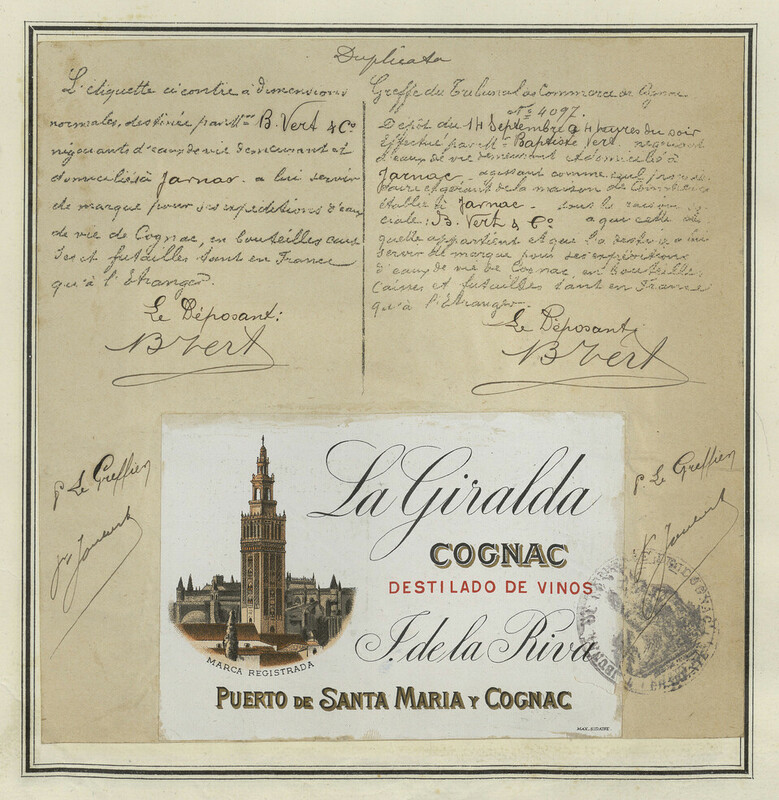 Duplicata
L'étiquette ci contre à dimensions
normales, destinée par Mr B. Vert & Co
négociants d'eaux de vie demeurant et
domiciliés à Jarnac. a lui servir
de marque pour ses expéditions d'eaux
de vie de Cognac, en bouteilles cais
ses et futailles tant en France
qu'à l'Etranger.
Le Déposant:
B Vert
Greffe du Tribunal de Commerce de Cognac
No 4097.
Dépôt du 14 Septembre à 4 heures du soir
Effectué par Mr Baptiste Vert négociant
d'eaux de vie demeurant et domicilié à
Jarnac. agissant comme seul
et gérant de la maison de Commerce
établie à Jarnac. sous la raison so
ciale: B. Vert & Co a qui cette éti
quette appartient et que l'a destinée a lui
servir de marque pour ses expéditions
d'eaux de vie de Cognac, en Bouteilles
Caisses et futailles tant en France
qu'à l'Etranger.
Le Déposant:
B Vert
p. Le Greffier
p. Le Greffier
La Giralda
COGNAC
DESTILADO DE VINOS
J. de la Riva
MARCA REGISTRADA
PUERTO DE SANTA MARIA Y COGNAC